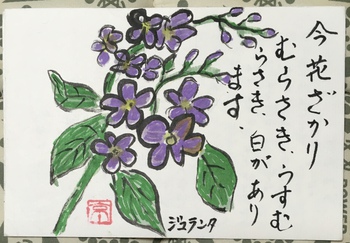 今花ざかり
むらさき、うすむ
らさき、白があり
ます、
ジュランタ
京